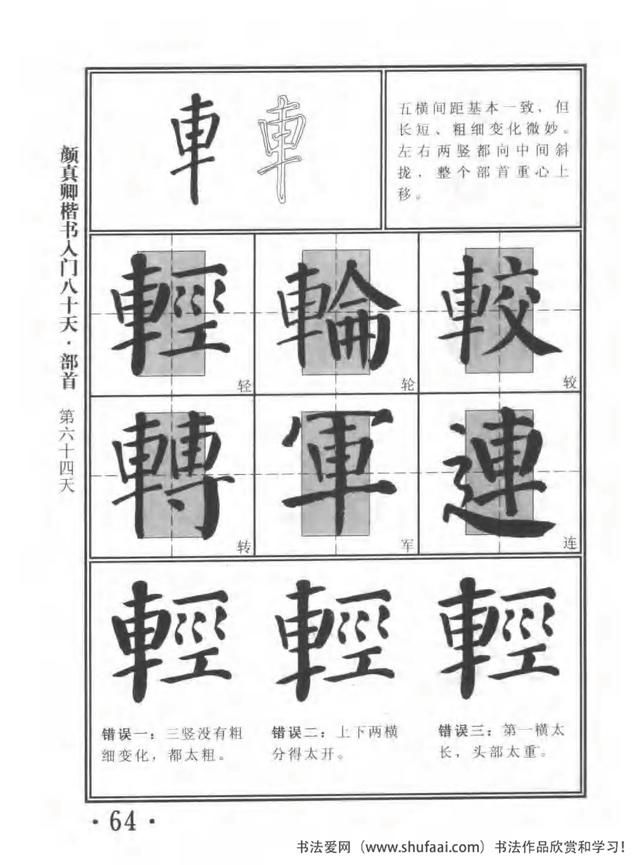 颜真卿楷书入门八十天·部首
第六十四天
車 車
五横间距基本一致，但
长短、粗细变化微妙。
左右两竖都向中间斜
拢，整个部首重心上
移。
輕 輪 較
轻 轮 较
轉 軍 連
转 军 连
輕 輕 輕
错误一：三竖没有粗
细变化，都太粗。
错误二：上下两横
分得太开。
错误三：第一横太
长，头部太重。
·64·
书法爱网（www.shufaai.com）书法作品欣赏和学习！